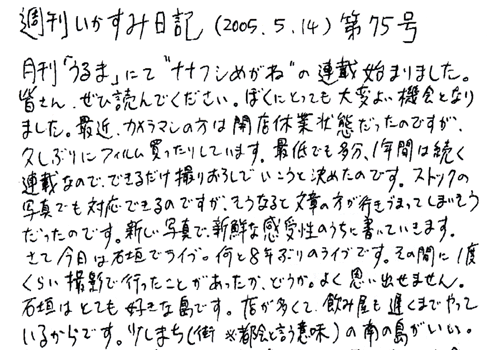 週刊いかすみ日記 (2005.5.14) 第75号
月刊「うるま」にて"ナナフシめがね"の連載始まりました。
皆さん、ぜひ読んでください。ぼくにとっても大変よい機会となり
ました。最近、カメラマンの方は開店休業状態だったのですが、
久しぶりにフィルム買ったりしています。最低でも多分、1年間は続く
連載なので、できるだけ撮りおろしでいこうと決めたのです。ストックの
写真でも対応できるのですが、そうなると文章の方が行きづまってしまいそう
だったのです。新しい写真で、新鮮な感受性のうちに書いていきます。
さて今日は石垣でライブ。何と8年ぶりのライブです。その間に1度
くらい撮影で行ったことがあったか、どうか。よく思い出せません。
石垣はとても好きな島です。店が多くて、飲み屋も遅くまでやって
いるからです。少しまち(街 ※都会と言う意味)の南の島がいい。